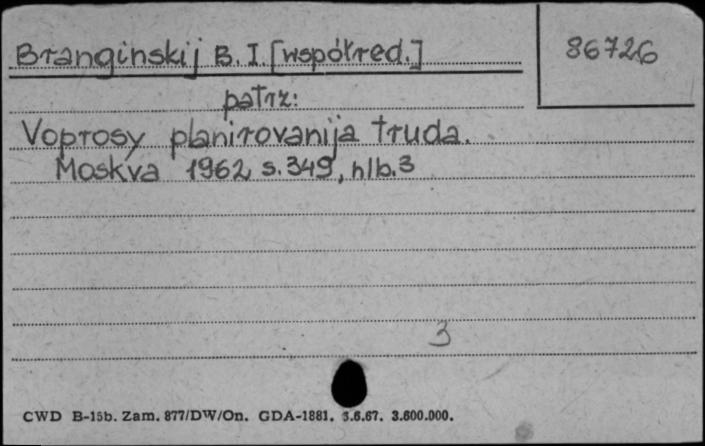 Branginskij B. I. [współred.]
86726
patrz:
Voprosy planirovanija truda.
Moskva 1962, s. 349, nlb. 3
3
CWD B-15b. Zam. 877/DW/On. GDA-1881. 3.6.67. 3.600.000.